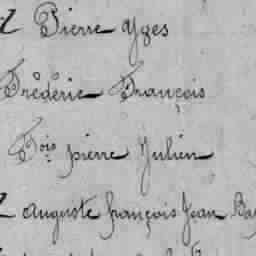 Pierre Yves
Frédéric François
Fois pierre Julien
auguste françois Jean